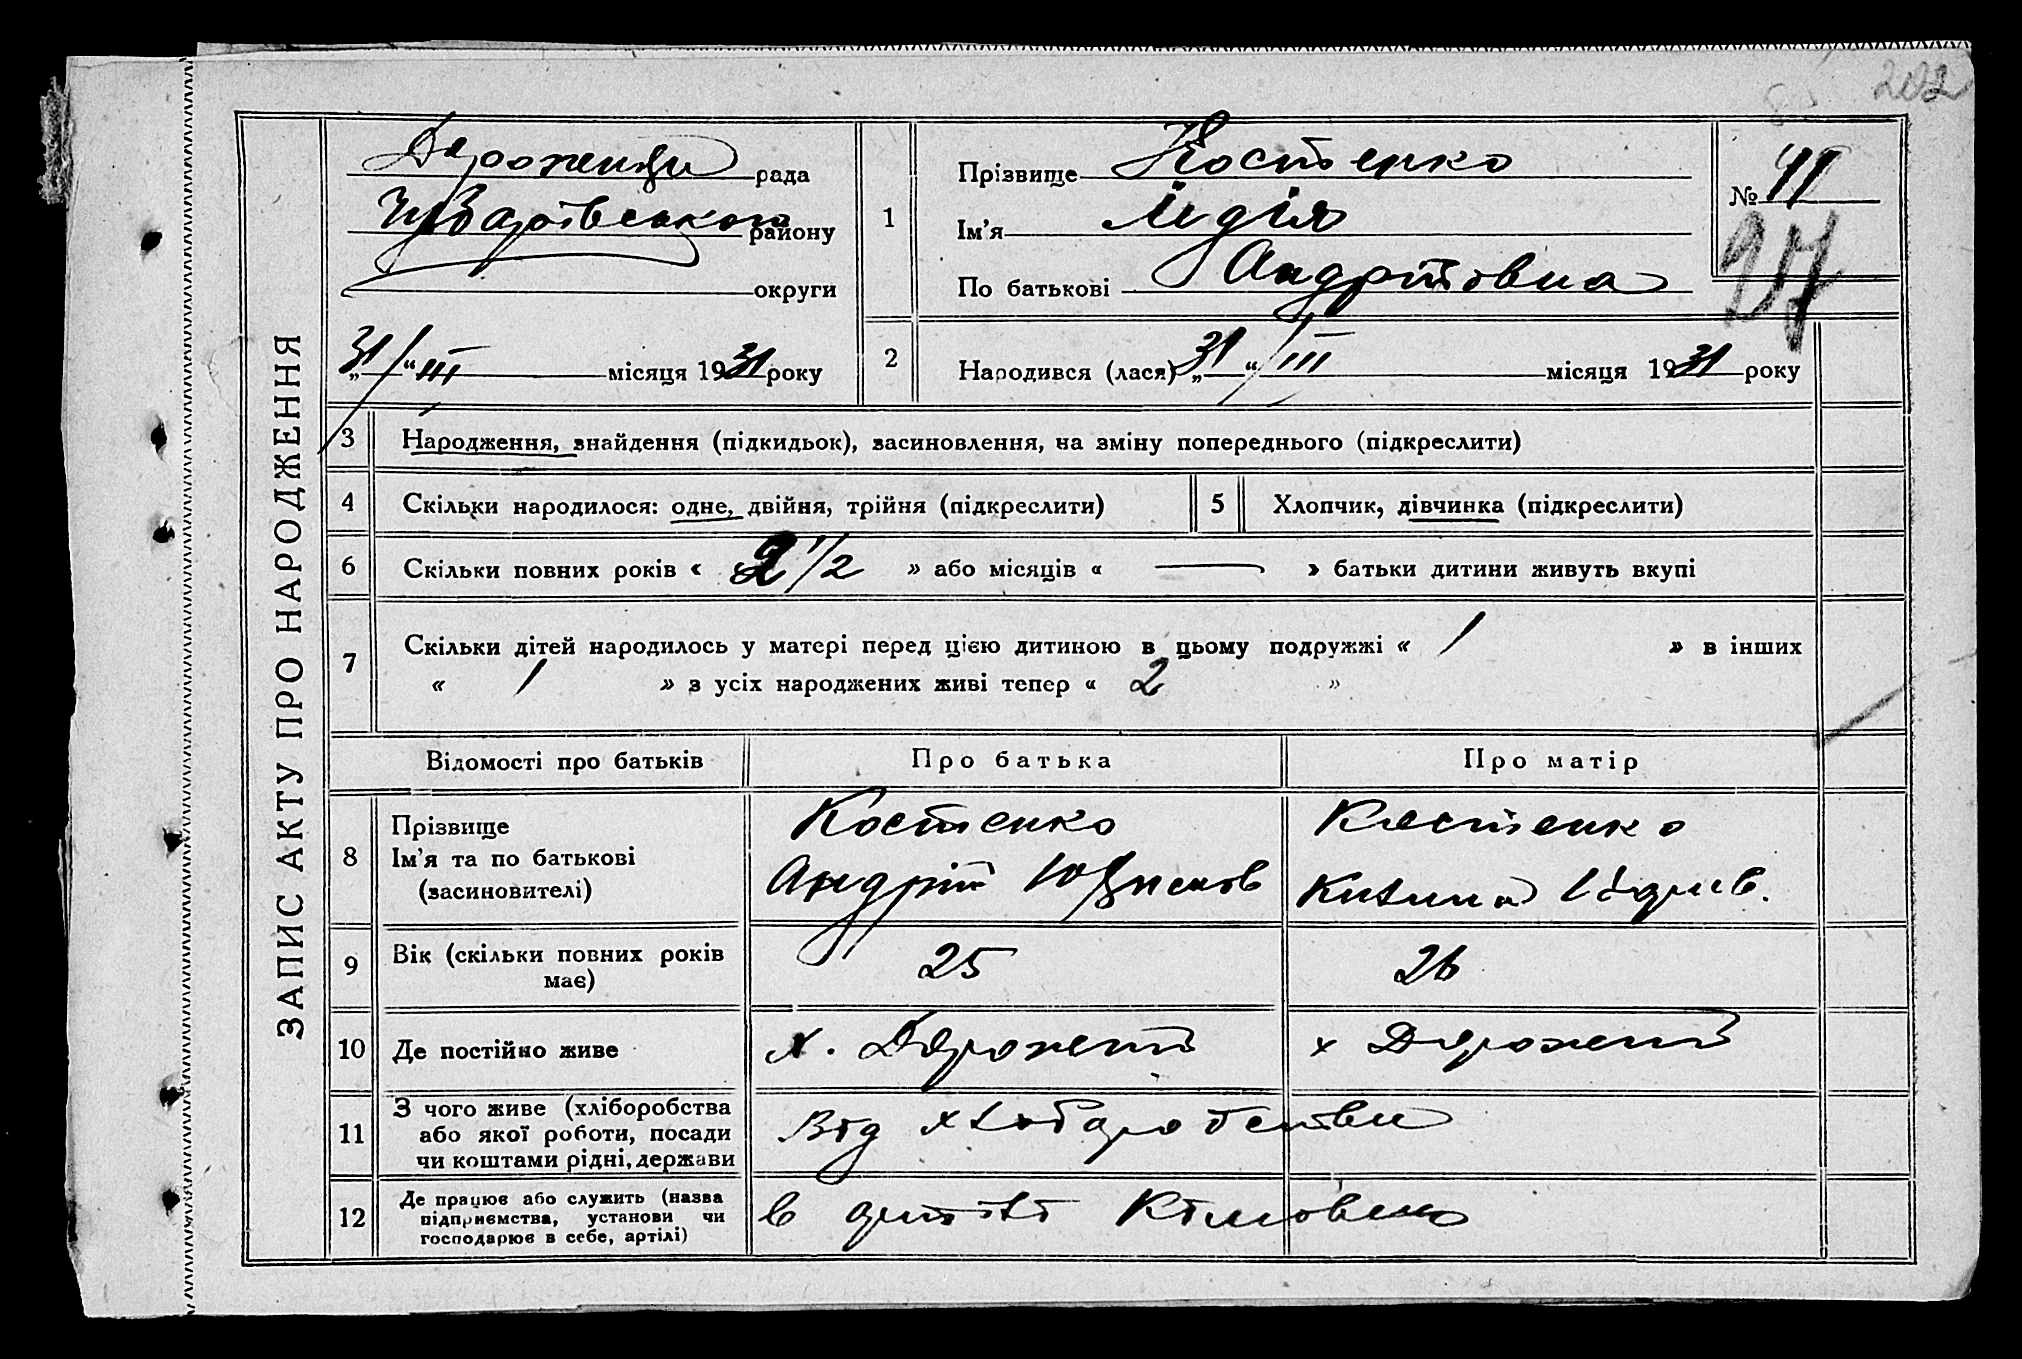 202
ЗАПИС АКТУ ПРО НАРОДЖЕННЯ
рада
району
округи
„31“ III місяця 1931 року
1
Прізвище Костенко
Ім'я Лідія
По батькові Андріївна
№ 41
97
2
Народився (лася) „31“ III місяця 1931 року
3
Народження, знайдення (підкидьок), засиновлення, на зміну попереднього (підкреслити)
4
Скільки народилося: одне, двійня, трійня (підкреслити)
5
Хлопчик, дівчинка (підкреслити)
6
Скільки повних років « 2 1/2 » або місяців « — » батьки дитини живуть вкупі
7
Скільки дітей народилось у матері перед цією дитиною в цьому подружжі « 1 » в інших
« 1 » з усіх народжених живі тепер « 2 »
Відомості про батьків
Про батька
Про матір
8
Прізвище
Ім'я та по батькові
(засиновителі)
Костенко
Андрій
Костенко
9
Вік (скільки повних років
має)
25
26
10
Де постійно живе
х.
х
11
З чого живе (хліборобства
або якої роботи, посади
чи коштами рідні, держави
Від хліборобства
12
Де працює або служить (назва
підприємства, установи чи
господарює в себе, артілі)
в артілі